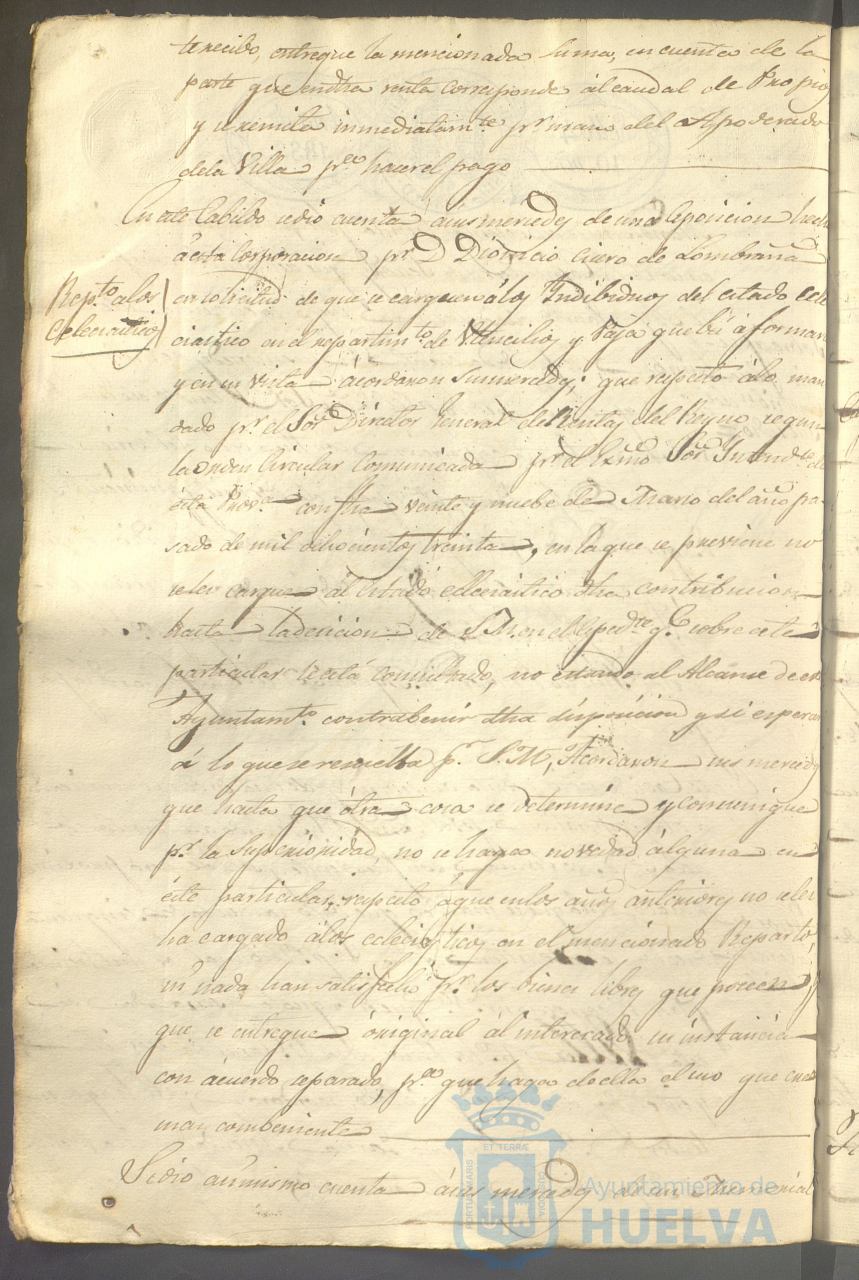 te recibo, entregue la mencionada suma, en cuenta de la
parte que en dha renta corresponde al caudal de Propios
y se remita inmediatamte. pr. mano del Apoderado
dela Villa pra. hacer el pago
En este Cabildo se dio cuenta á sus mercedes de una esposicion hecha
á esta Corporacion pr. D Dionicio Ciero de Lombraña
Repto. alos
Eclesiasticos
en solicitud de que se carguen á los Indibiduos del estado ecle
ciastico en el repartimto. de Utencilios y Paja que bá á formarse
y en su vista ácordaron sus mercedes; que respeto álo man
dado pr. el Sor. Director General de Rentas del Reyno segun
la orden Circular Comunicada pr. el Exmo Sor. Intendte. de
esta Prova. con fha veinte y nuebe de Marzo del año pa-
sado de mil ochocientos treinta, en la que se previene no
se les cargue al estado eclesiastico dha contribucion
hasta la decicion de S.M. en el Espedte. q.e sobre este
particular le está consultado, no estando al Alcanse de este
Ayuntamto. contrabenir dha disposicion y si esperar
á lo que se resuelba pr. S.M., Acordaron sus mercedes
que hasta que ótra cosa se determine y comunique
pr. la Superioridad, no se haga novedad álguna en
éste particular, respeto áque en los años anteriores no se les
ha cargado álos eclesiasticos en el mencionado Reparto,
ni nada han satisfecho pr. los bienes libres que poseen;
que se entregue óriginal ál interesado su instancia
con ácuerdo separado, pra. que haga de ella el uso que crea
mas combeniente
Se dio asimismo cuenta á sus mercedes de un Memorial
PORTUS MARIS
ET TERRÆ
CUSTODIA
Ayuntamiento de
HUELVA